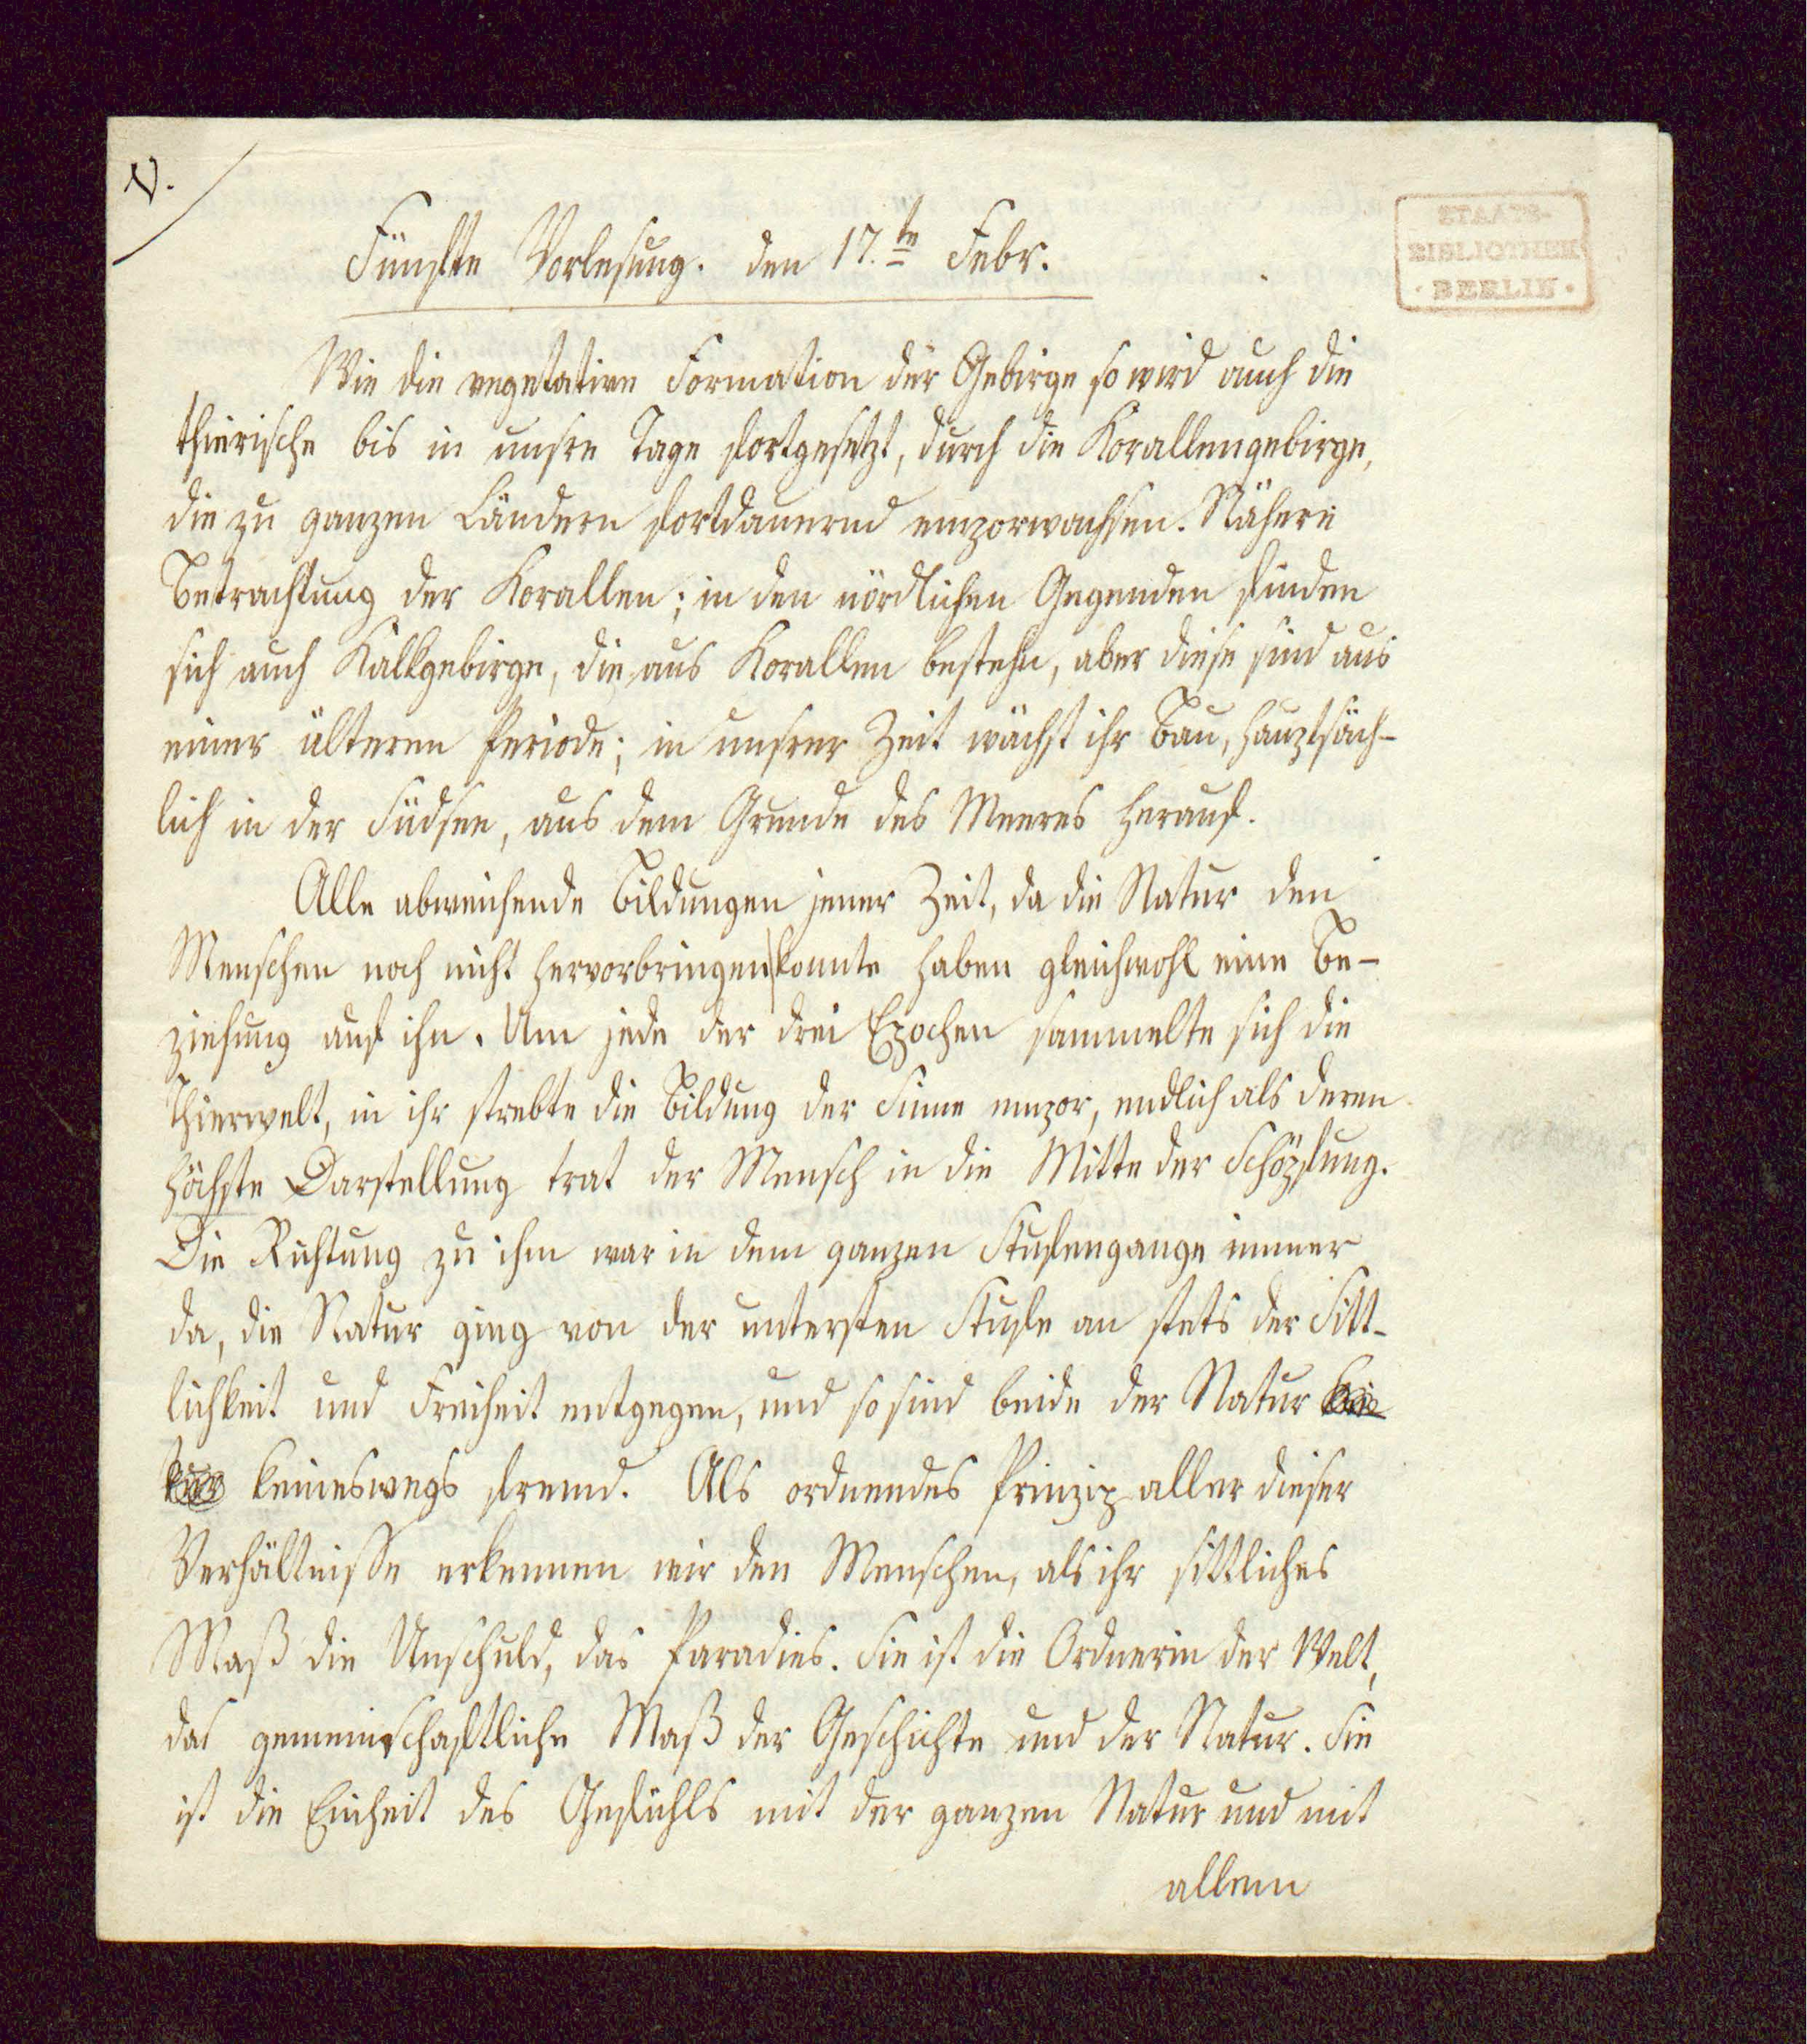 V.
STAATS-
BIBLIOTHEK
· BERLIN ·
Fünfte Vorlesung. den 17.te Febr.
Wie die vegetative Formation der Gebirge so wird auch die
thierische bis in unsre Tage fortgesetzt, durch die Korallengebirge,
die zu ganzen Ländern fortdauernd emporwachsen. Nähere
Betrachtung der Korallen; in den nördlichen Gegenden finden
sich auch Kalkgebirge, die aus Korallen bestehn, aber diese sind aus
einer älteren Periode; in unsrer Zeit wächst ihr Bau, hauptsäch-
lich in der Südsee, aus dem Grunde des Meeres herauf.
Alle abweichende Bildungen jener Zeit, da die Natur den
Menschen noch nicht hervorbringen konnte haben gleichwohl eine Be-
ziehung auf ihn. Um jede der drei Epochen sammelte sich die
Thierwelt, in ihr strebte die Bildung der Sinne empor, endlich als deren
höchste Darstellung trat der Mensch in die Mitte der Schöpfung.
Die Richtung zu ihm war in dem ganzen Stufengange immer
da, die Natur ging von der untersten Stufe an stets der Sitt-
lichkeit und Freiheit entgegen, und so sind beide der Natur
keineswegs fremd. Als ordnendes Prinzip aller dieser
Verhältnisse erkennen wir den Menschen, als ihr sittliches
Maß die Unschuld, das Paradies. Sie ist die Ordnerin der Welt,
das gemeinschaftliche Maß der Geschichte und der Natur. Sie
ist die Einheit des Gefühls mit der ganzen Natur und mit
allem